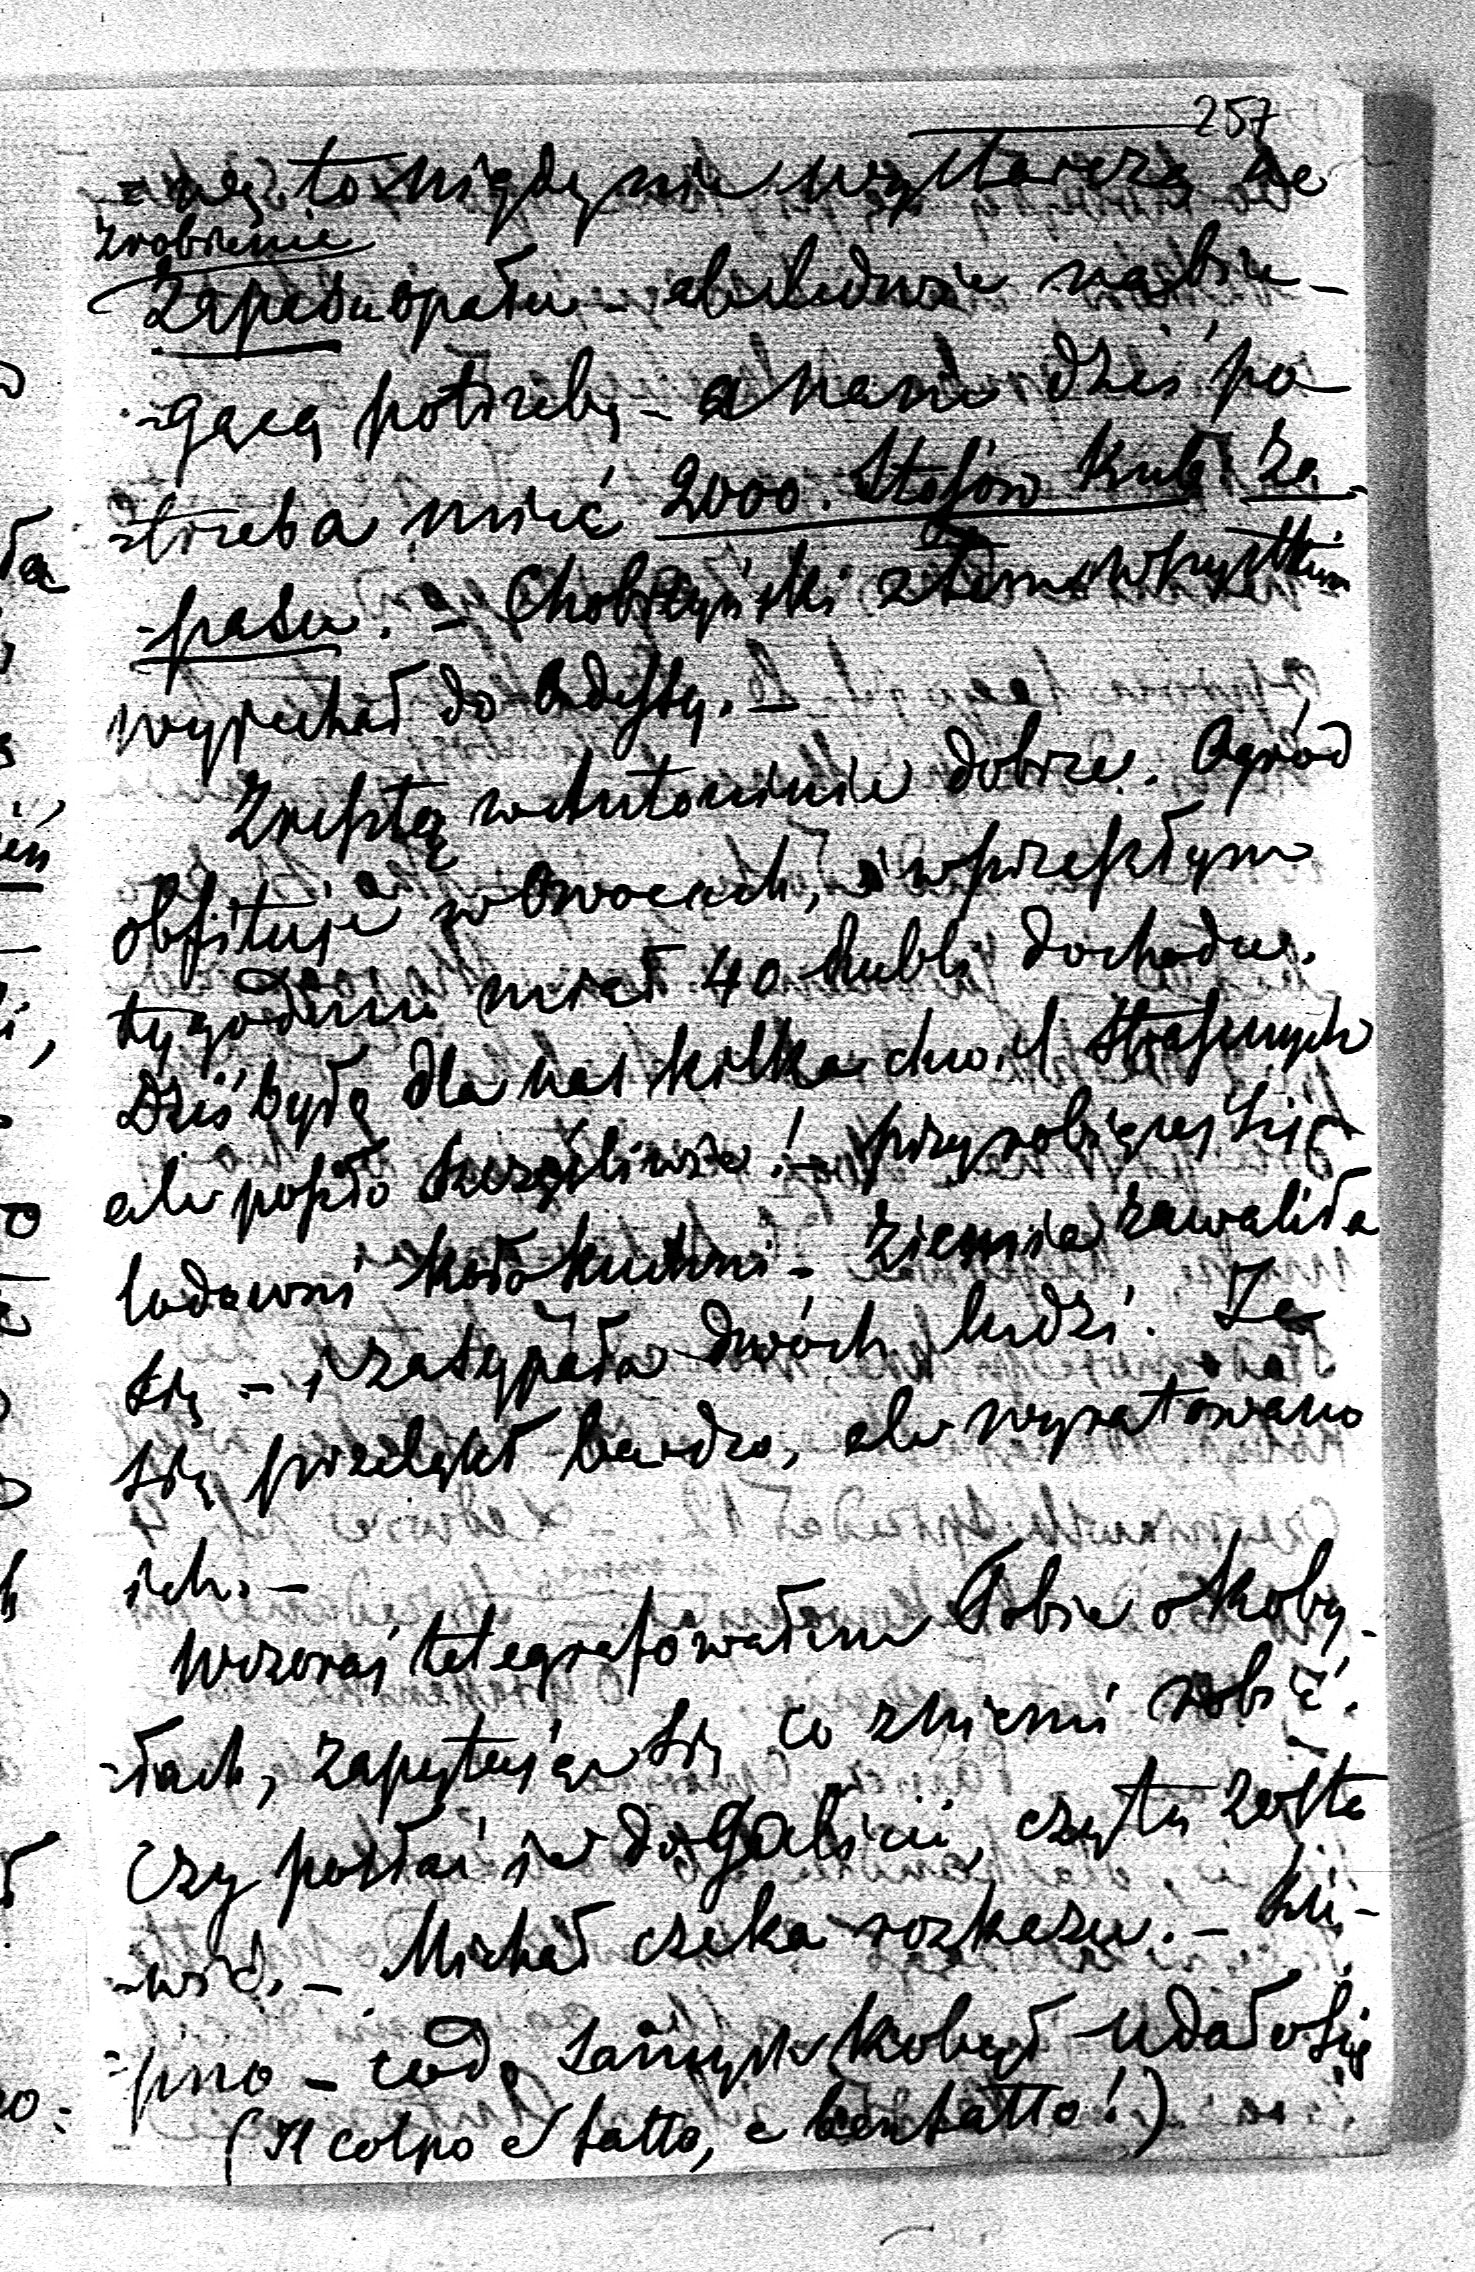 257
-nę, to nigdy nie wystarczą na
zrobienie
zapasu opału - ale ledwie na bie-
-gącą potrzebę - a nam dziś po-
-trzeba mieć 2000. Stosów Kub: za-
-pasu. - Chobrzyński z tem wszystkim
wyjechał do Odessy. -
Zresztą w Antoninie dobrze. Ogród
obfituje w owocach, i w przeszłym
tygodniu miał 40 Rubli dochodu.
Dziś były dla nas kilka chwil strasznych
ale poszło szczęśliwie! - przy robiącej się
lodowni koło kuchni - ziemia zawaliła
się - i zasypała dwóch ludzi. Ja
się przeląkł bardzo, ale wyratowano
ich. -
Wczoraj telegrafowałem Tobie o Koby-
-łach, zapytując się co z niemi robić.
Czy posłać je do Galicii, czy tu zosta-
-wić. - Michał czeka rozkazu. -
-pno - Kobył udało się
(Il colpo e fatto, e ben fatto!)